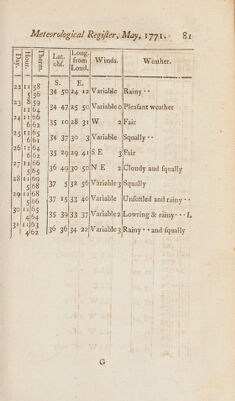 Meteorological Register, May, 1771. 81
Day. Hour. Therm. Lat. obs. Long. from Lond. Winds. Weather.
S. E.
22 11 58 34 50 24 12 Variable Rainy ··
5 56
23 8 59 34 47 25 50 Variable 0 Pleasant weather
11 64
24 11 66 35 10 28 31 W 2 Fair
6 62
25 11 65 36 37 30 3 Variable Squally ··
6 61
26 11 64 35 29 29 41 S E 3 Fair
6 62
27 11 66 36 49 30 50 N E 2 Cloudy and squally
5 65
28 11 69 37 5 32 56 Variable 3 Squally
5 68
29 11 68 37 15 33 40 Variable Unsettled and rainy ··
5 66
30 11 65 35 39 33 37 Variable 2 Lowring & rainy ··· L
4 64
31 11 63 36 36 34 22 Variable 3 Rainy ·· and squally
4 62
G